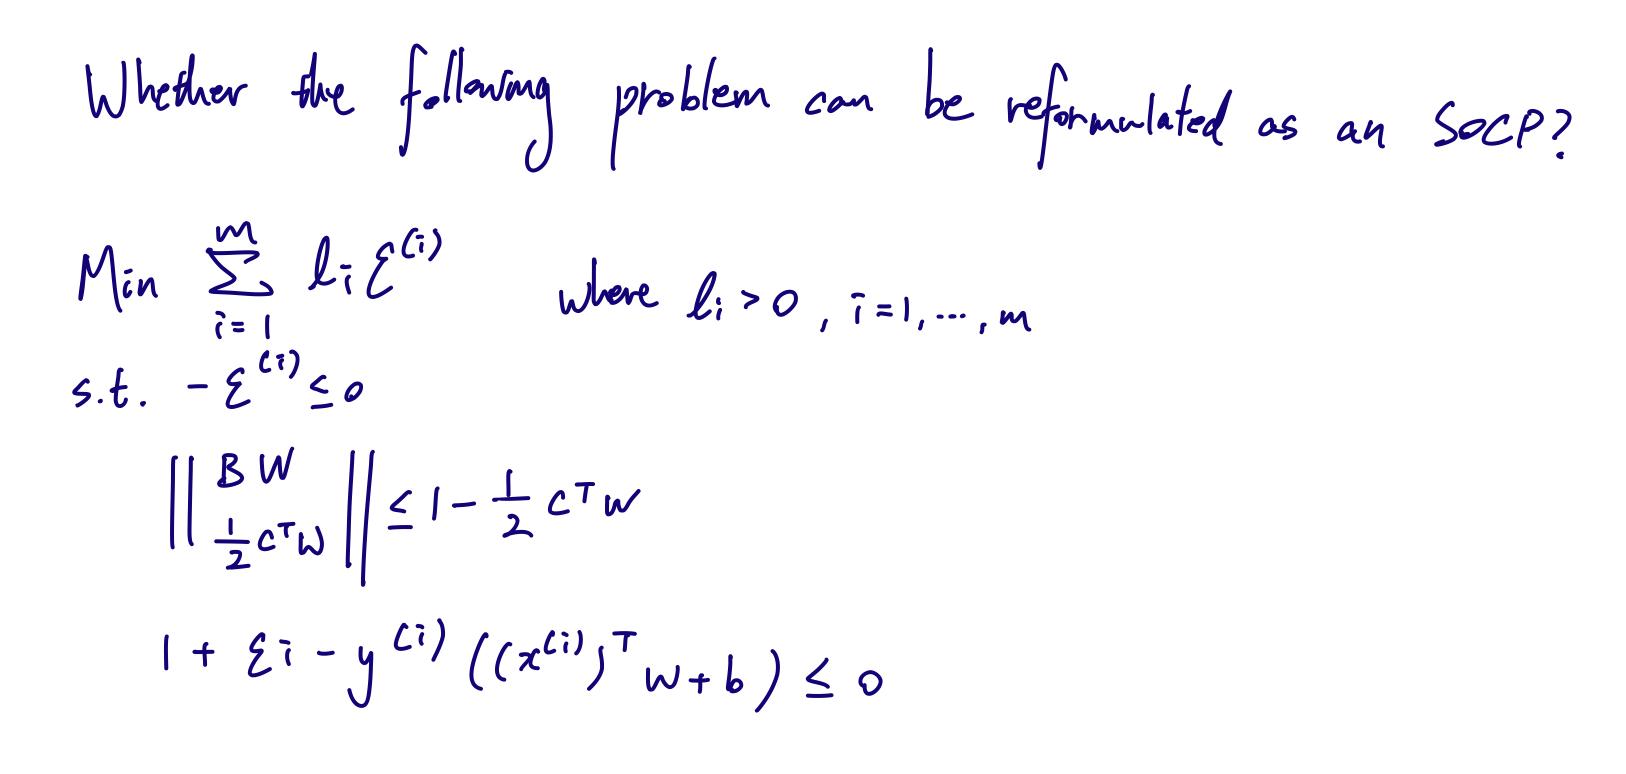 Whether the following problem can be reformulated as an SOCP?
Min \sum_{i=1}^{m} l_i ε^{(i)} where l_i > 0, i=1, ..., m
s.t. -ε^{(i)} ≤ 0
|| BW \\ \frac{1}{2} c^T W || ≤ 1 - \frac{1}{2} c^T w
1 + ε_i - y^{(i)} ((x^{(i)})^T w + b) ≤ 0